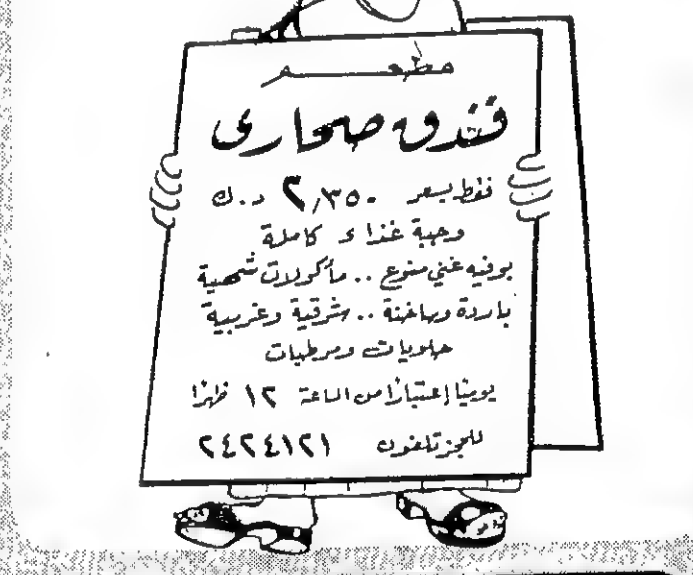 مطعم
فندق صحارى
فقط بسعر ٢,٣٥٠ د.ك
وجبة غذاء كاملة
بوفيه غني متنوع .. مأكولات شهية
باردة وساخنة .. شرقية وغربية
حلويات ومرطبات
يوميًا إعتبارًا من الساعة ١٢ ظهرًا
للحجز تلفون ٢٤٢٤١٢١